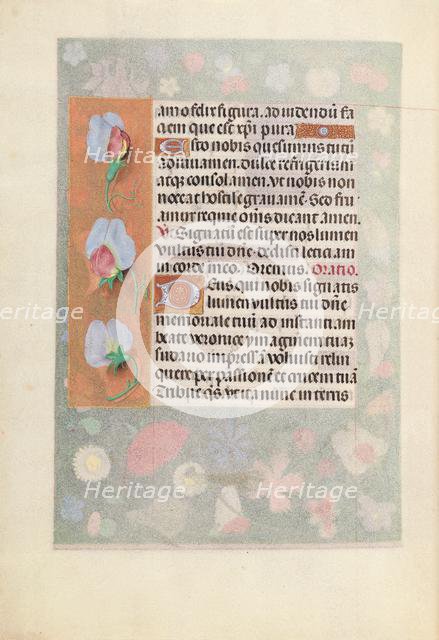 amo felix figura. ad uidendū fa
ciem que est xp̄i pura
Esto nobis quesumus tutū
adiuuamen. dulce refrigeriū
atqȝ consolamen. vt nobis non
noceat hostile grauamē. Sed fru
amur requie om̄s dicant amen.
V̄. Signatū est super nos lumen
vultus tui dn̄e. dedisti letitiam
in corde meo. Oremus. Oratio.
Deus qui nobis signatis
lumen vultus tui dn̄e
memoriale tuū ad instantiam
beate veronice ymaginem tuaȝ
sudario impressā voluisti relin
quere per passionē et crucem tuā
Tribue q̄s. vt ita nunc in terris
Heritage
Heritage
Heritage
Heritage
Heritage
Heritage
Heritage